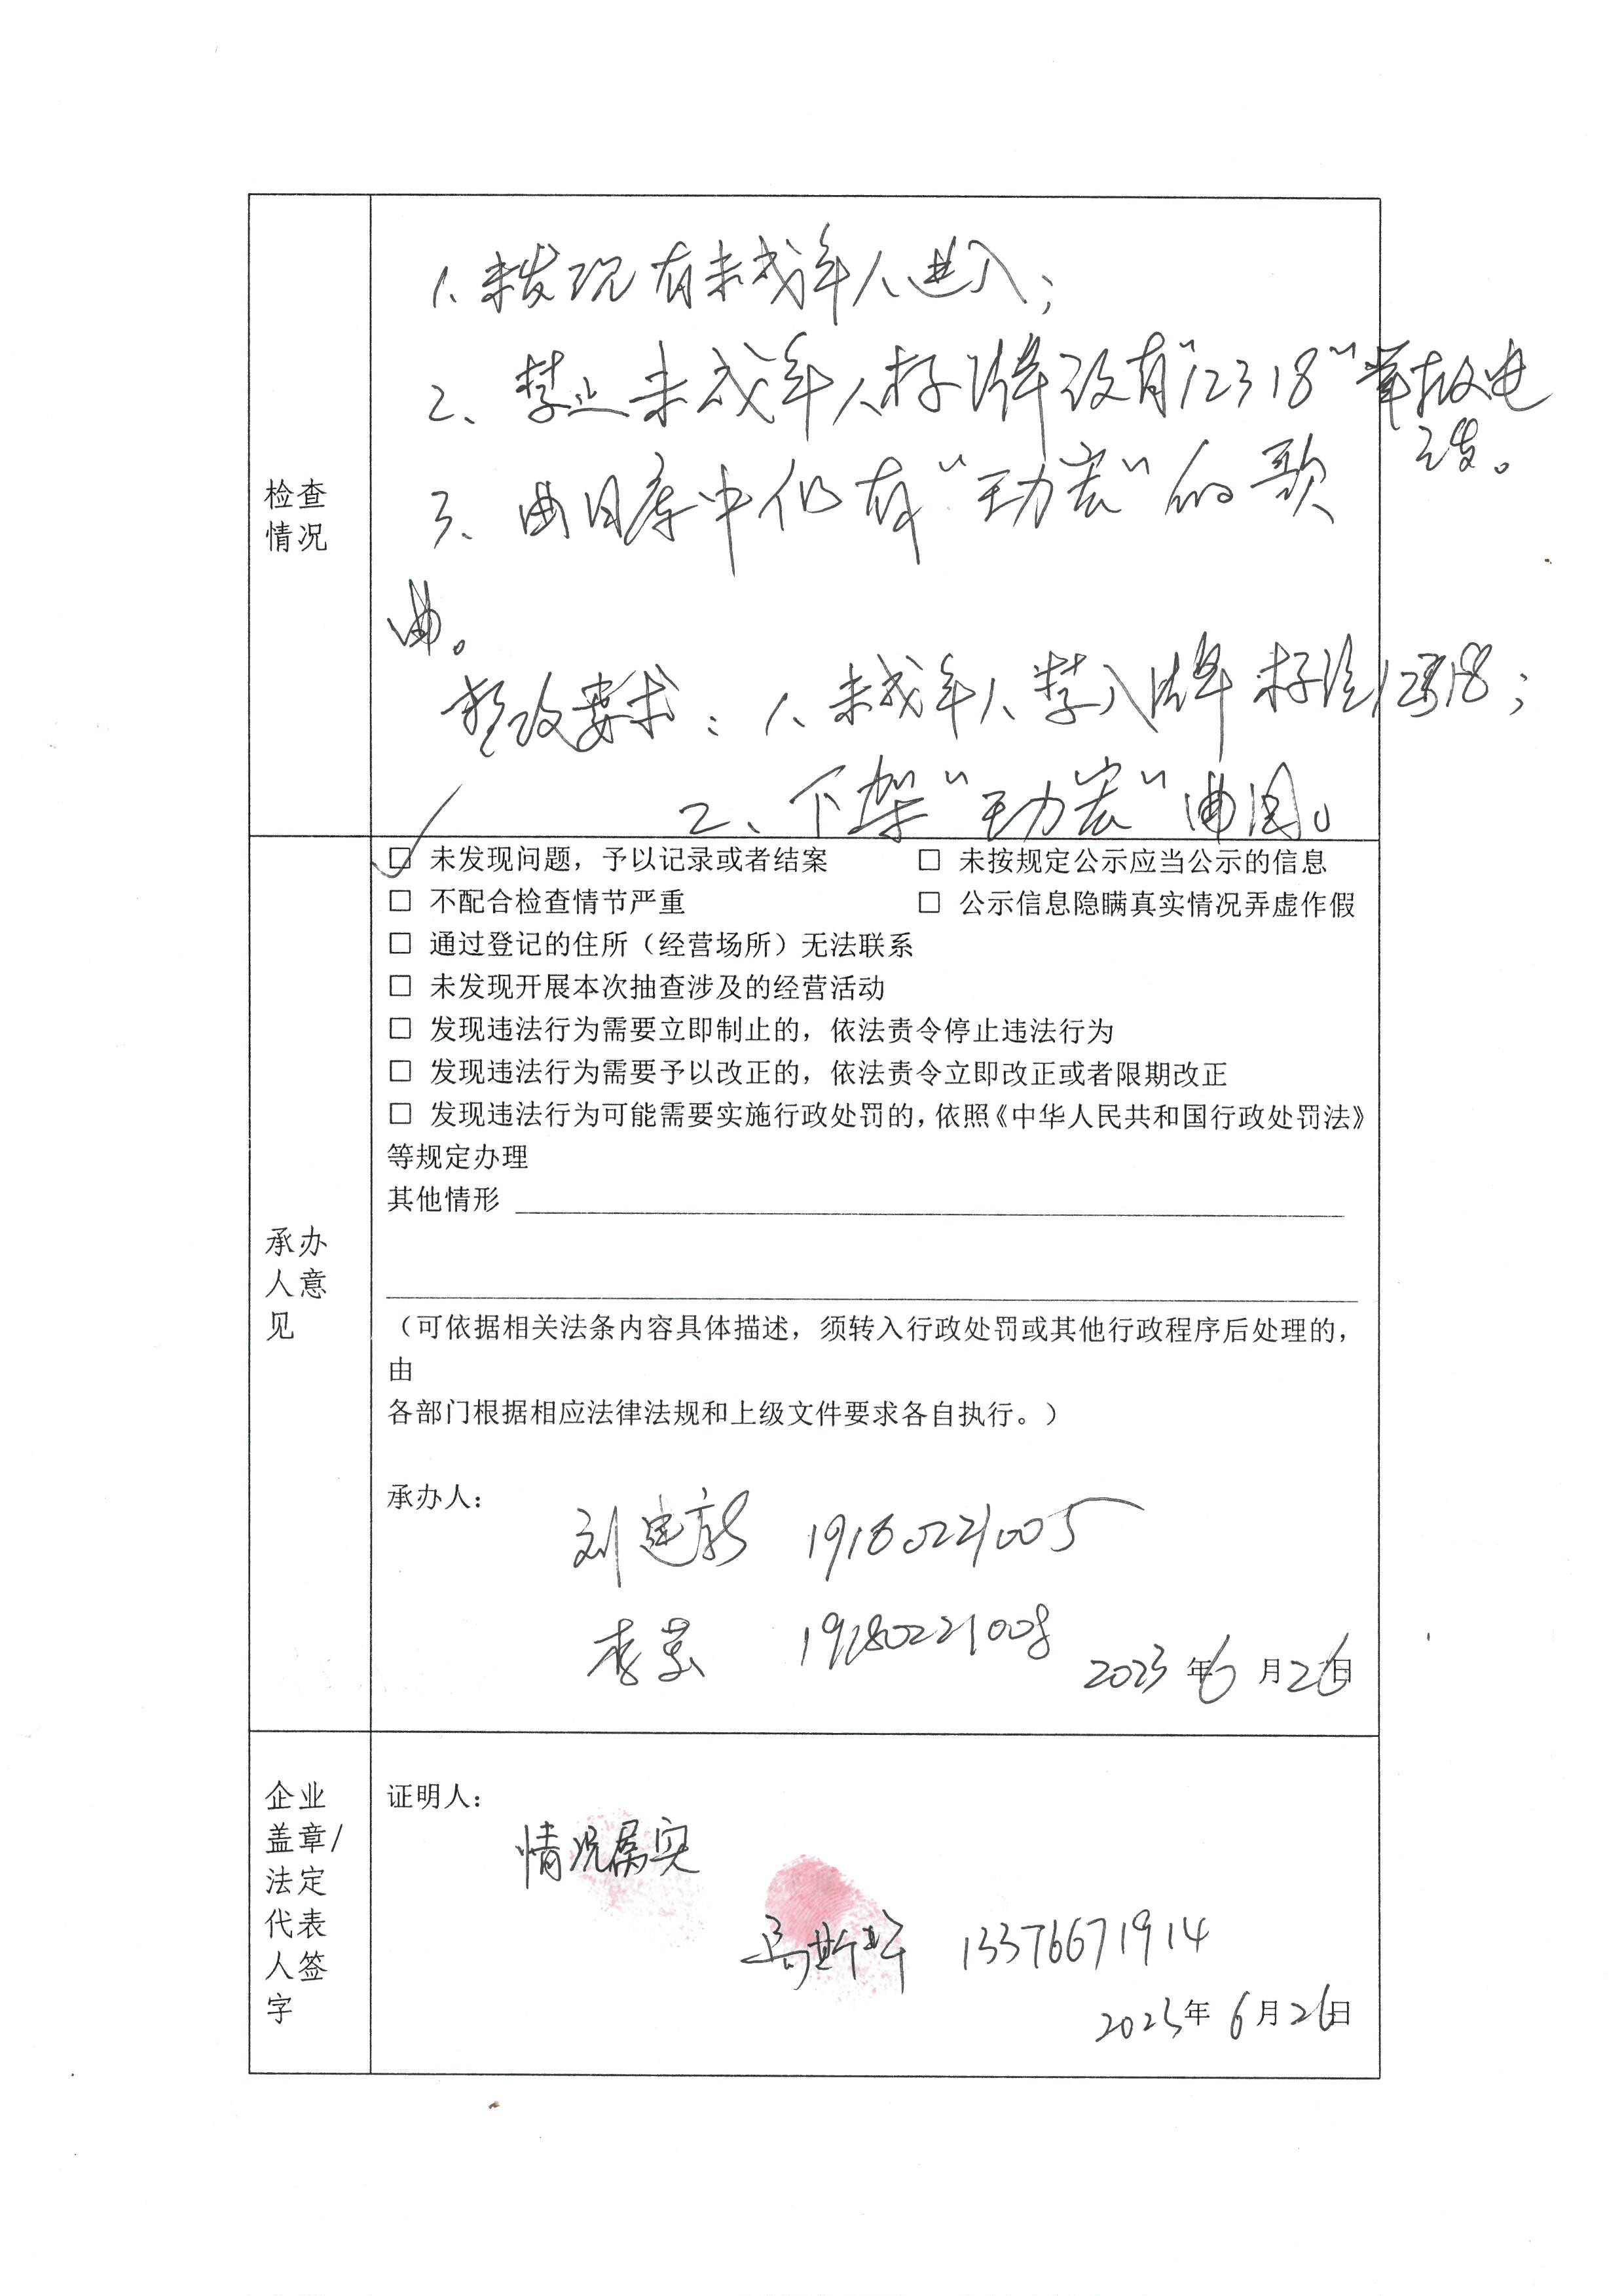 检查
情况
1、未发现有未成年人进入；
2、禁止未成年人标牌没有“12318”举报电
话。
3、曲目库中仍有“王力宏”的歌
曲。
整改要求：1、未成年人禁入牌标注12318；
2、下架“王力宏”曲目。
承办
人意
见
☑ 未发现问题，予以记录或者结案 □ 未按规定公示应当公示的信息
□ 不配合检查情节严重 □ 公示信息隐瞒真实情况弄虚作假
□ 通过登记的住所（经营场所）无法联系
□ 未发现开展本次抽查涉及的经营活动
□ 发现违法行为需要立即制止的，依法责令停止违法行为
□ 发现违法行为需要予以改正的，依法责令立即改正或者限期改正
□ 发现违法行为可能需要实施行政处罚的，依照《中华人民共和国行政处罚法》
等规定办理
其他情形
（可依据相关法条内容具体描述，须转入行政处罚或其他行政程序后处理的，
由
各部门根据相应法律法规和上级文件要求各自执行。）
承办人：
刘建 19180221005
李 19180221008
2023年6月26日
企业
盖章/
法定
代表
人签
字
证明人：
情况属实
马斯 13376671914
2023年6月26日